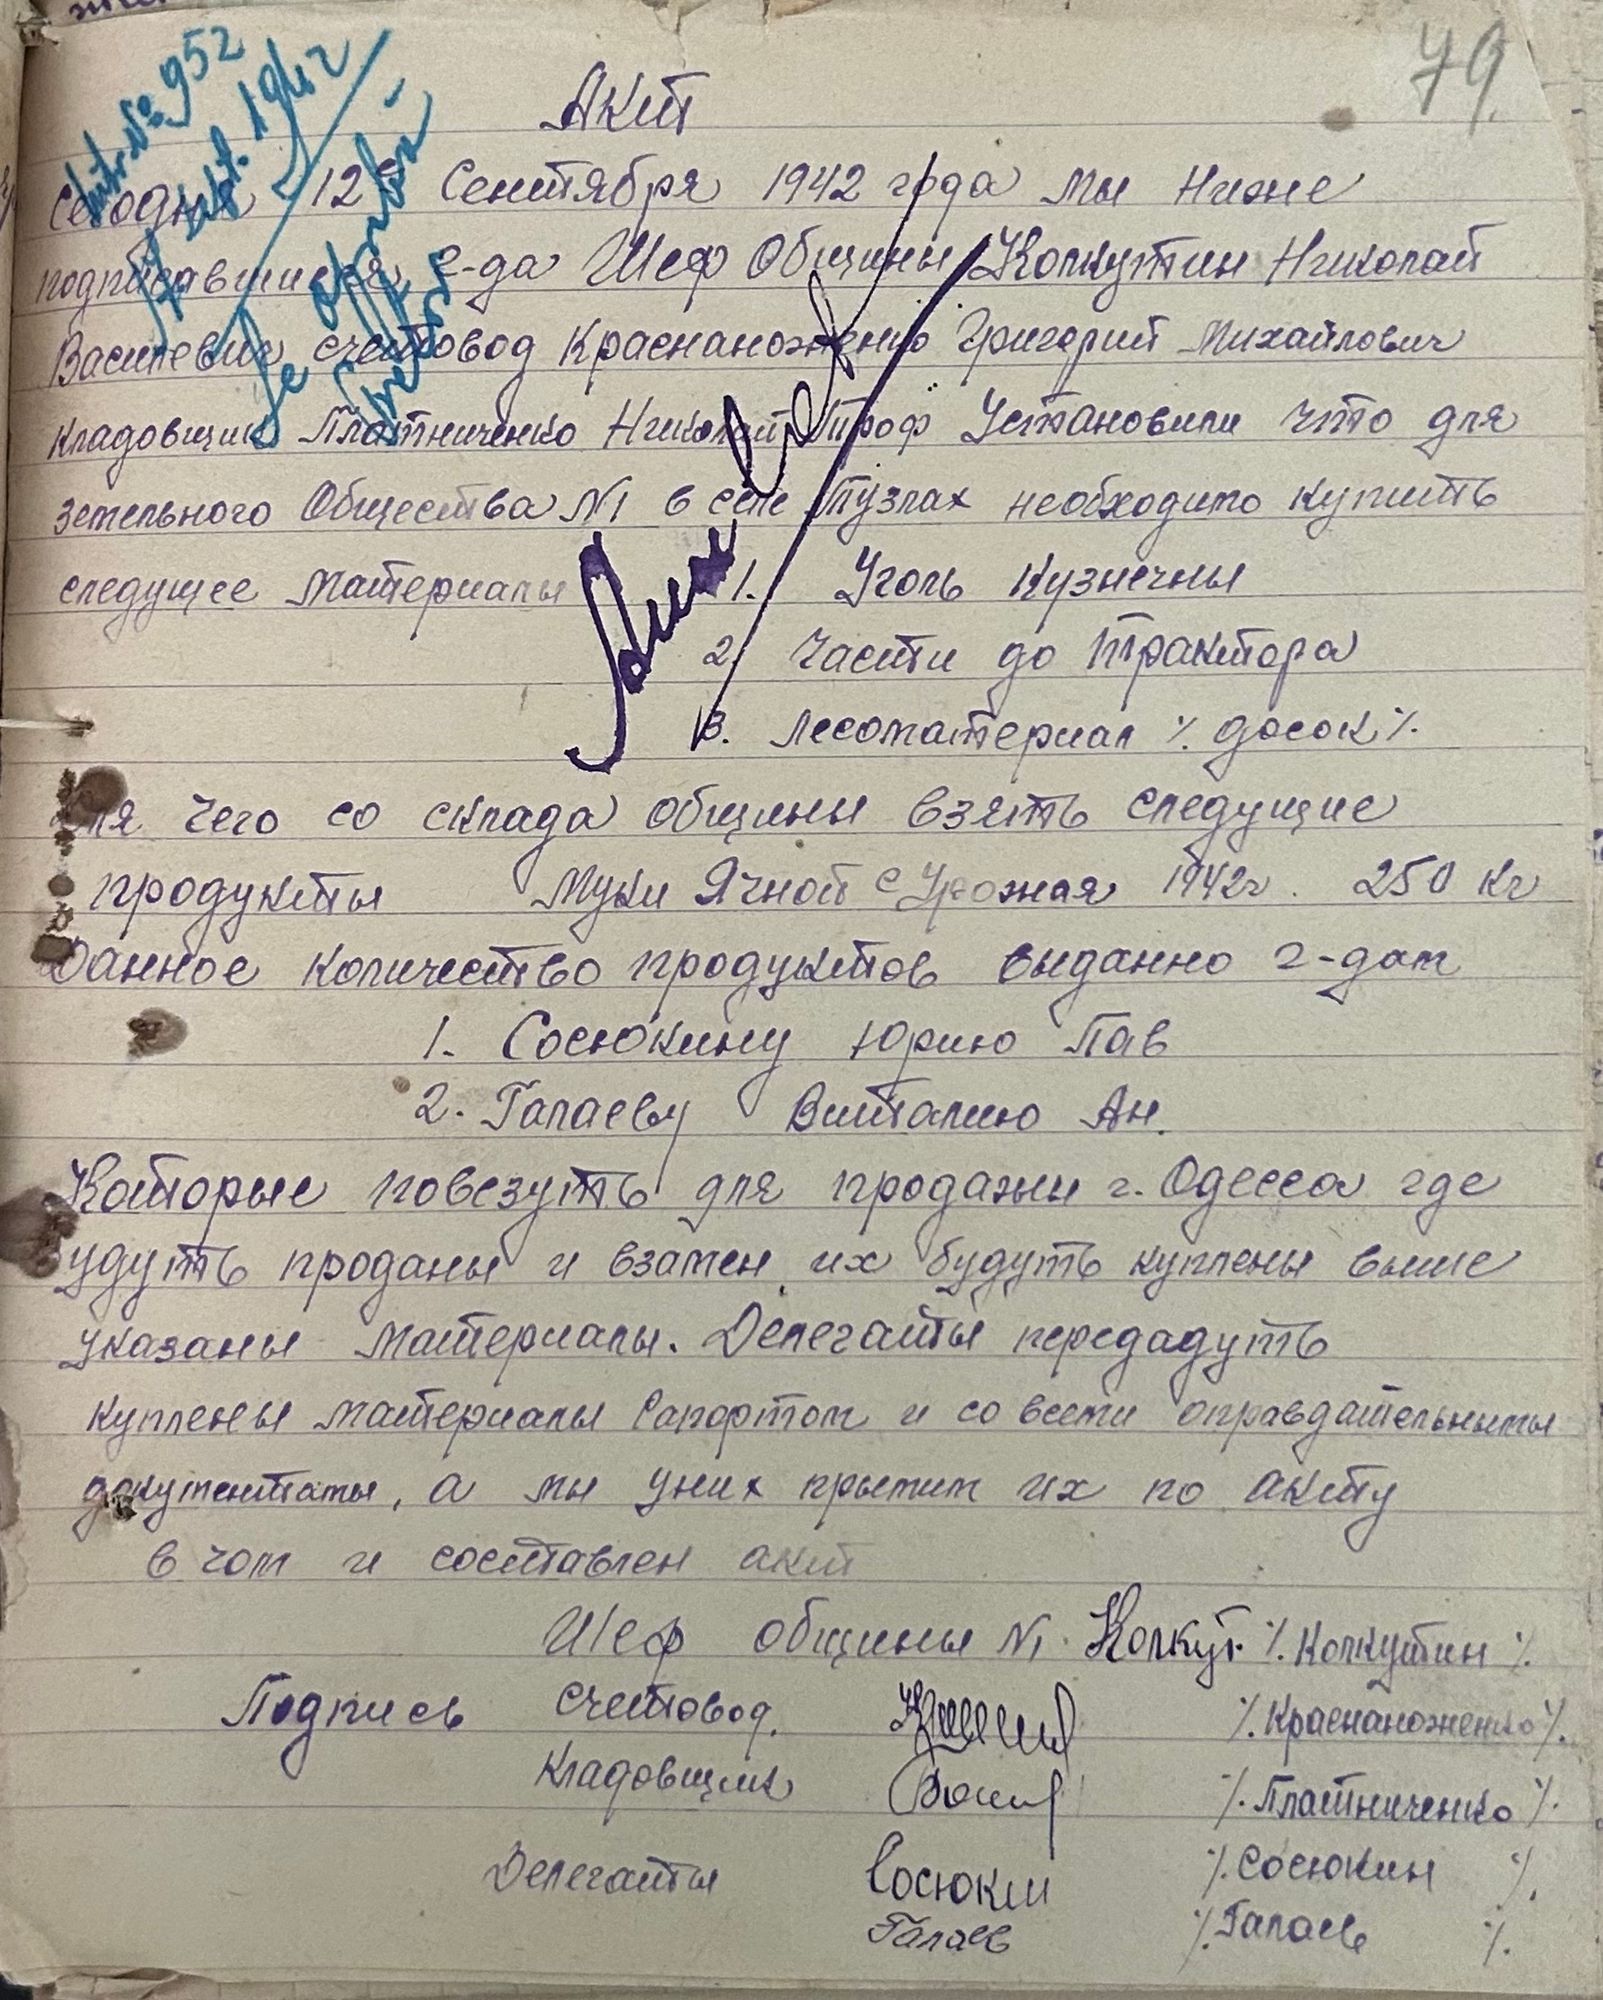 79
№ 952
1942
Se aprobă
Акт
Сегодня 12го Сентября 1942 года мы Ниже
подписавшиеся г-да Шеф Общины Колкутин Николай
Василевич счетовод Краснаноженко Григорий Михайлович
кладовщик Платниченко Николай Троф Установили что для
земельного Общества №1 в селе Тузлах необходимо купить
следущее материалы 1. Уголь Кузнечны
2. Части до Трактора
3. Лесоматериал ·/. досок ·/.
для чего со склада общины взять следущие
продукты Муки Ячной с Урожая 1942г. 250 кг
Данное количество продуктов выданно г-дам
1. Сосюкину Юрию Пав
2. Галаеву Виталию Ан.
Которые повезуть для продажи г. Одесса где
удуть проданы и взамен их будуть куплены выше
указаны материалы. Делегаты передадуть
куплены материалы рапортом и со всеми оправдательными
документами, а мы уних прымим их по акту
в чом и составлен акт
Шеф общины №1. Колкут. ·/. Колкутин ·/.
Подпись счетовод. ·/. Краснаноженко ·/.
Кладовщик ·/. Платниченко ·/.
Делегаты Сосюкин ·/. Сосюкин ·/.
Галаев ·/. Галаев ·/.